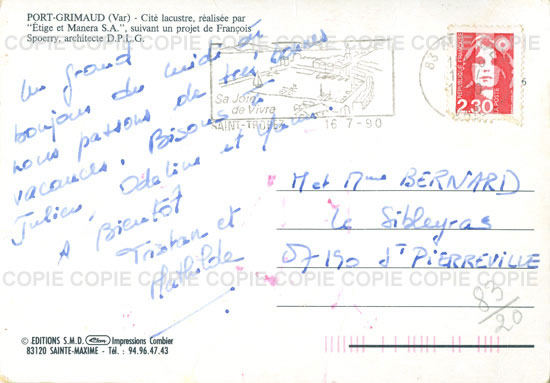 PORT-GRIMAUD (Var) - Cité lacustre, réalisée par
"Étige et Manera S.A.", suivant un projet de François
Spoerry, architecte D.P.L.G.
COPIE COPIE COPIE COPIE COPIE COPIE COPIE COPIE
Un grand
bonjour du midi où
nous passons de très bonnes
vacances. Bisous à
Julien, Odeline et
A Bientôt
Tristan et
Mathilde
Sa Joie
de Vivre
SAINT-TROPEZ
16-7-90
83
REPUBLIQUE FRANÇAISE
LA POSTE
2,30
M et Mme BERNARD
Le Sibleyras
07190 St PIERREVILLE
COPIE COPIE COPIE COPIE COPIE COPIE COPIE COPIE
83/20
© EDITIONS S.M.D. Impressions Combier
83120 SAINTE-MAXIME - Tél. : 94.96.47.43